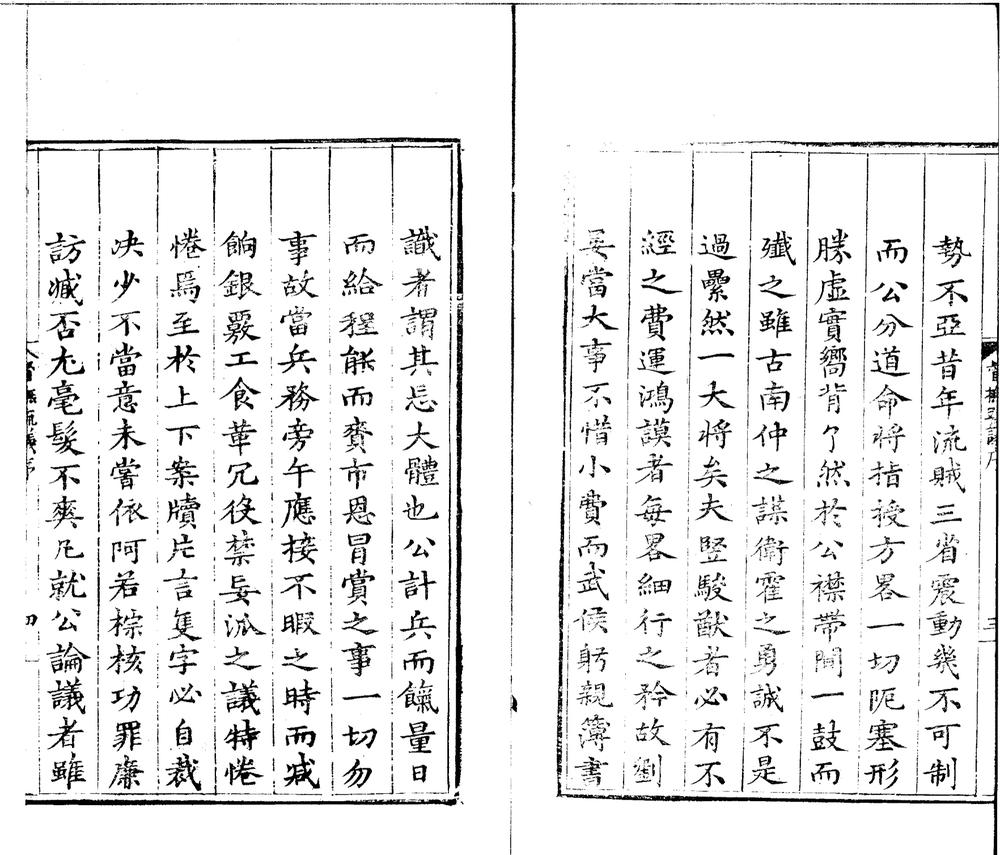 勢不亞昔年流賊三省震動幾不可制
而公分道命將指授方畧一切阨塞形
勝虛實嚮背了然於公襟帶間一鼓而
殲之雖古南仲之謀衛霍之勇誠不是
過纍然一大將矣夫竪駿猷者必有不
經之費運鴻謨者每畧細行之矜故劉
晏當大事不惜小費而武侯躬親簿書
識者謂其忘大體也公計兵而餼量日
而給程餱而賚市恩冒賞之事一切勿
事故當兵務旁午應接不暇之時而减
餉銀覈工食革冗役禁妄派之議特惓
惓焉至於上下案牘片言隻字必自裁
决少不當意未嘗依阿若綜核功罪廉
訪臧否尢毫髮不爽凡就公論議者雖